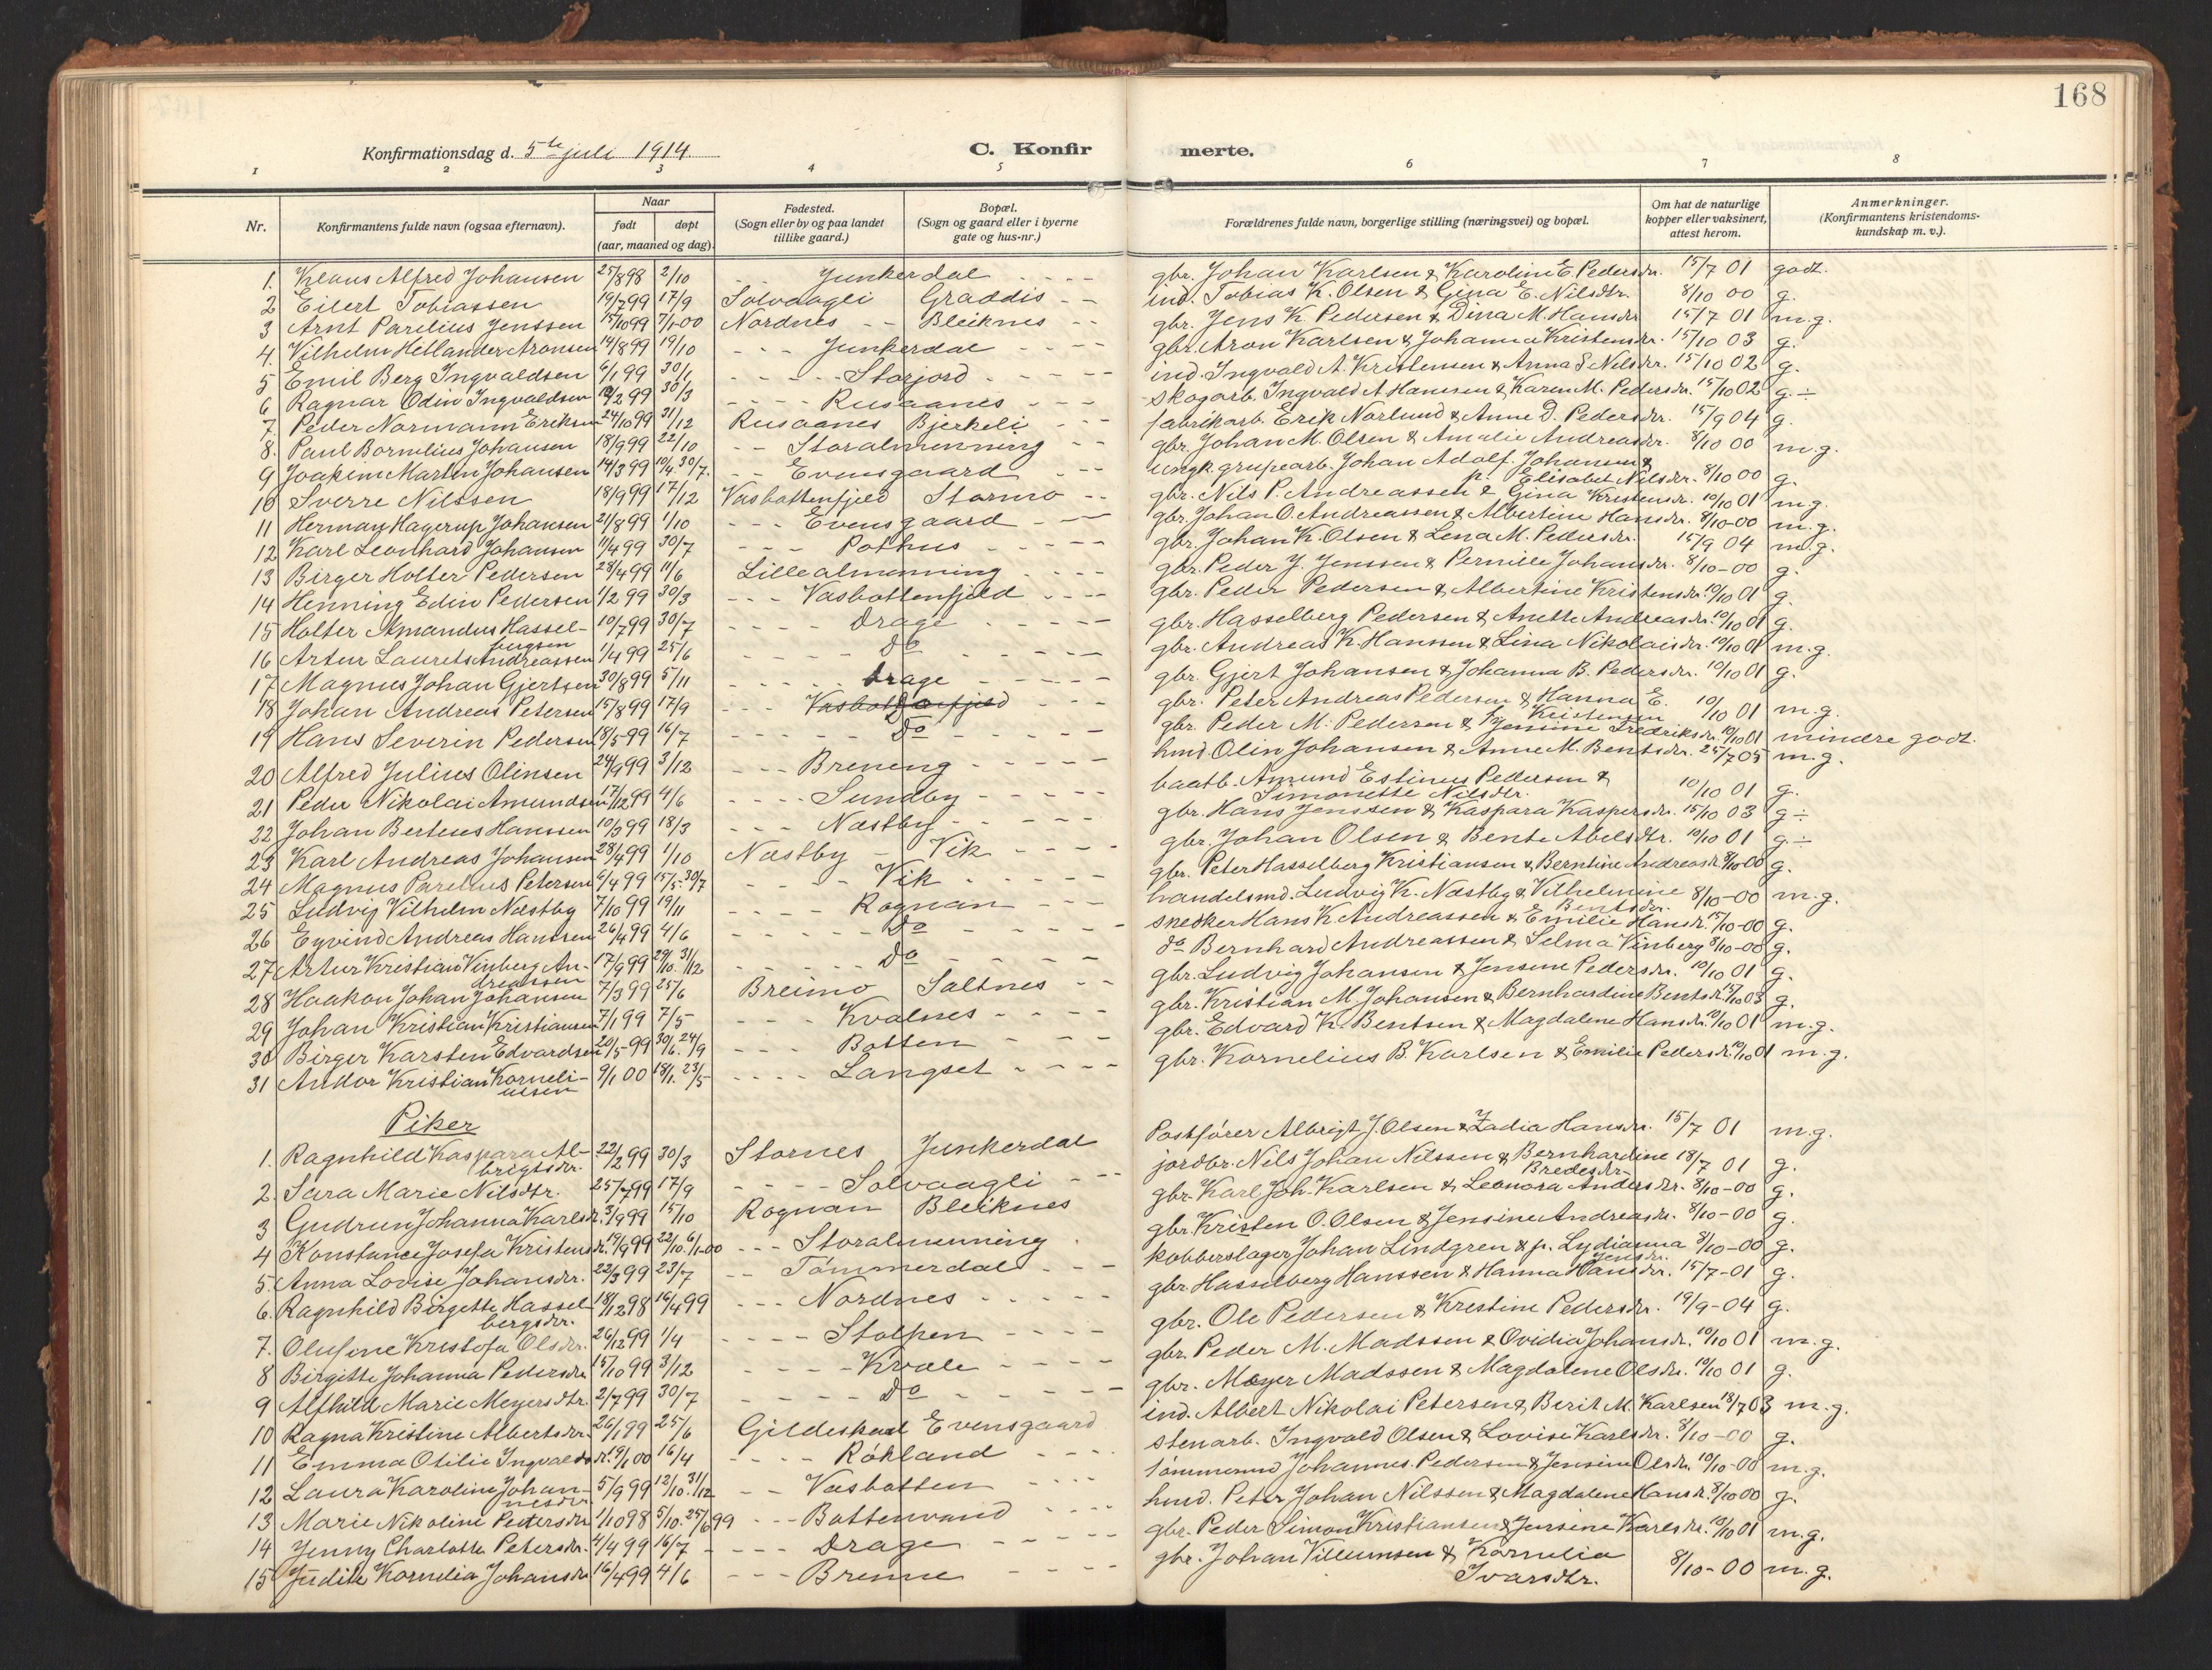 168
Konfirmationsdag d. 5te juli 1914
C. Konfirmerte.
1 2 3 4 5 6 7 8
Nr.
Konfirmantens fulde navn (ogsaa efternavn).
Naar
født døpt
(aar, maaned og dag).
Fødested.
(Sogn eller by og paa landet
tillike gaard.)
Bopæl.
(Sogn og gaard eller i byerne
gate og hus-nr.)
Forældrenes fulde navn, borgerlige stilling (næringsvei) og bopæl.
Om hat de naturlige
kopper eller vaksinert,
attest herom.
Anmerkninger.
(Konfirmantens kristendoms-
kundskap m. v.).
1. Klaus Alfred Johansen 25/8 98 2/10 Junkerdal gbr. Johan Karlsen & Karoline E. Pedersdr. 15/7 01 godt.
2 Eilert Tobiassen 19/7 99 17/9 Solvaagli Graddis ind. Tobias K. Olsen & Gina E. Nilsdtr. 8/10 00 g.
3 Arnt Parelius Jenssen 15/10 99 7/1-00 Nordnes Bleiknes gbr. Jens K. Pedersen & Dina M. Hansdr 15/7 01 m.g.
4. Vilhelm Hetlander Aronsen 14/8 99 19/10 Junkerdal gbr. Aron Karlsen & Johanna Kristensdr. 15/10 03 g.
5 Emil Berg Ingvaldsen 6/1 99 30/1 Storjord ind. Ingvald A. Kristensen & Anna S Nilsdr. 15/10 02 g.
6 Ragnar Odin Ingvaldsen 12/2 99 30/3 Rusaanes skogarb. Ingvald A Hanssen & Karen M. Pedersdr. 15/10 02 g ÷
7 Peder Normann Eriksen 24/10 99 31/12 Rusaanes Bjerkeli fabrikarb. Erik Norlund & Anne D. Pedersdr. 15/9 04 g.
8. Paul Bornelius Johansen 18/9 99 22/10 Storalmenning gbr. Johan M. Olsen & Amalie Andreasdr. 8/10 00 m.g.
9 Joakim Martin Johansen 14/3 99 10/4. 30/7. Evensgaard ungk. grupearb. Johan Adolf Johansen &
p. Elisabet Nilsdr. 8/10 00 g.
10 Sverre Nilssen 18/9 99 17/12 Vasbottenfjeld Stormo gbr. Nils P. Andreassen & Gina Kristensdr. 10/10 01 m.g.
11 Herman Hagerup Johansen 21/8 99 1/10 Evensgaard gbr. Johan O. Andreassen & Albertine Hansdr. 8/10-00 m.g.
12 Karl Leonhard Johansen 11/4 99 30/7 Pothus gbr. Johan K. Olsen & Lena M. Pedersdr. 15/9 04 m.g.
13 Birger Holter Pedersen 28/4 99 11/6 Lillealmenning gbr. Peder J. Jenssen & Pernille Johansdr. 8/10-00 g.
14 Henning Edin Pedersen 1/2 99 30/3 Vasbottenfjeld gbr. Peder Pedersen & Albertine Kristensdr. 10/10 01 g.
15 Holter Amandus Hassel-
bergsen 10/7 99 30/7 Drage gbr. Hasselberg Pedersen & Anette Andreasdr. 10/10 01 g.
16 Artur Laurets Andreassen 1/4 99 25/6 Do gbr. Andreas K. Hanssen & Lina Nikolaisdr. 10/10 01 m.g.
17 Magnus Johan Gjertsen 30/8 99 5/11 Drage gbr. Gjert Johansen & Johanna B. Pedersdr. 10/10 01 g.
18 Johan Andreas Petersen 15/8 99 17/9 Vasbottenfjeld Do gbr. Peter Andreas Pedersen & Hanna E.
Kristensen 10/10 01 m.g.
19 Hans Severin Pedersen 18/5-99 16/7 Do gbr. Peder M. Pedersen & Gjensine Fredriksdr. 10/10 01 mindre godt.
20 Alfred Julius Olinsen 24/9 99 3/12 Breneng hmd. Olin Johansen & Anne M. Bentsdr. 25/7 05 m.g.
21 Peder Nikolai Amundsen 17/12 99 4/6 Sundby baatb. Amund Estinus Pedersen &
Simonette Nilsdtr. 10/10 01 g.
22 Johan Berteus Hanssen 10/3 99 18/3 Næstby gbr. Hans Jenssen & Kaspara Kaspersdr. 15/10 03 g ÷
23 Karl Andreas Johansen 28/4 99 1/10 Næstby Vik gbr. Johan Olsen & Bente Abelsdtr. 10/10 01 g. ÷
24 Magnus Parelius Petersen 6/4 99 15/5-30/7 Vik gbr. Peter Hasselberg Kristiansen & Berntine Andreasdr. 8/10-00 g.
25 Ludvig Vilhelm Næstby 7/10 99 19/11 Rognan handelsmd. Ludvig K. Næstby & Vilhelmine
Bentsdr. 8/10-00 m.g.
26 Eyvind Andreas Hanssen 26/4 99 4/6 Do snekker Hans K. Andreassen & Emilie Hansdr. 15/10-00 g.
27 Artur Kristian Vinberg An-
dreassen 17/9 99 29/10. 31/12 Do do Bernhard Andreassen & Selma Vinberg 8/10-00 g.
28 Haakon Johan Johansen 7/3 99 25/6 Breimo Saltnes gbr. Ludvig Johansen & Jensine Pedersdr. 10/10 01 g.
29 Johan Kristian Kristiansen 7/1 99 7/5 Kvalnes gbr. Kristian M. Johansen & Bernhardine Bentsdr. 15/10 03 g.
30 Birger Karsten Edvardsen 20/5-99 30/6. 24/9 Botten gbr. Edvard K. Bentsen & Magdalene Hansdr. 10/10 01 m.g.
31 Andor Kristian Korneli-
ussen 9/1 00 18/1. 23/5 Langset gbr. Kornelius B. Karlsen & Emilie Pedersdr. 10/10 01 m.g.
Piker
1. Ragnhild Kaspara Al-
brigtsdr. 22/2 99 30/3 Stornes Junkerdal Postfører Albrigt J. Olsen & Zadia Hansdr. 15/7 01 m.g.
2. Sara Marie Nilsdtr. 25/7 99 17/9 Solvaagli jordbr. Nils Johan Nilssen & Bernhardine
Bredesdr. 18/7 01 g.
3 Gudrun Johanna Karlsdr. 3/9 99 15/10 Rognan Bleiknes gbr. Karl Joh. Karlsen & Leonora Andersdr. 8/10-00 g.
4 Konstance Josefa Kristensdr. 14/9 99 22/10. 6/1-00 Storalmenning gbr. Kristen O. Olsen & Jensine Andreasdr. 8/10-00 g.
5. Anna Lovise Johansdr. 22/3 99 23/7 Tømmerdal kobberslager Johan Lindgren & p. Lydianna
Jensdr. 8/10-00 g.
6. Ragnhild Birgette Hassel-
bergsdr. 18/12 98 16/4 99 Nordnes gbr. Hasselberg Hanssen & Hanna Hansdr. 15/7-01 g.
7. Olufine Kristofa Olsdr. 26/12 99 1/4 Stolpen gbr. Ole Pedersen & Kristine Pedersdr. 19/9-04 g.
8 Birgitte Johanna Pedersdr. 15/10 99 3/12 Kvæle gbr. Peder M. Madssen & Ovidia Johansdr. 10/10 01 m.g.
9 Alfhild Marie Meyersdtr. 2/7 99 30/7 Do gbr. Meyer Madssen & Magdalene Olsdr. 10/10 01 g.
10 Ragna Kristine Albertsdr. 26/1 99 25/6 Gildeskaal Evensgaard ind. Albert Nikolai Petersen & Berit M. Karlsen 18/7 03 m.g.
11 Emma Otilie Ingvaldsdr. 9/1 00 16/4 Røkland stenarb. Ingvald Olsen & Lovise Karlsdr. 8/10-00 g.
12 Laura Karoline Johan-
nesdr. 5/9 99 12/10. 31/12 Vasbotten tømmermd Johannes Pedersen & Jensine Olsdr. 10/10-00 m.g.
13 Marie Nikoline Petersdr 1/10 98 5/10. 25/6 99 Bottenvand hmd. Peter Johan Nilssen & Magdalene Hansdr. 8/10 00 g.
14 Jenny Charlotte Petersdr. 4/4 99 16/7 Drage gbr. Peder Simon Kristiansen & Jensine Karlsdr. 10/10 01 m.g.
15 Judith Kornelia Johansdr 16/4 99 4/6 Brenne gbr. Johan Villumsen & Kornelia
Ivarsdtr. 8/10-00 m.g.